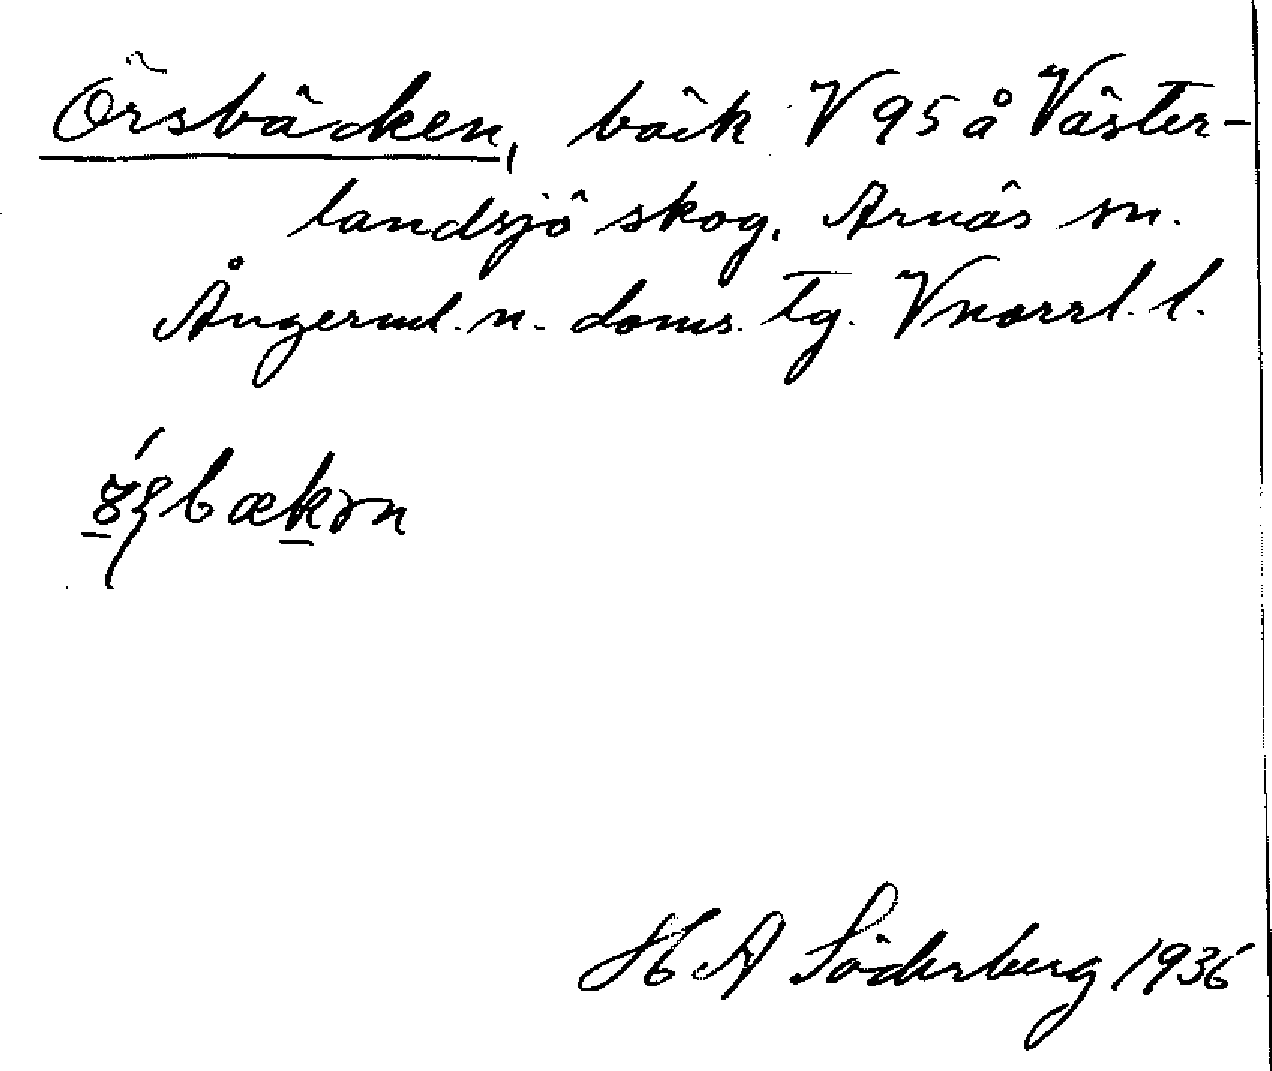 Örsbäcken, bäck V 95 å Väster-
landsjö skog, Arnäs sn.
Ångerml. n. doms. tg. Vnorrl. l.
H A Söderberg 1936